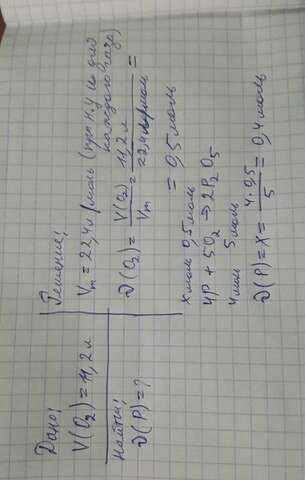 Дано:
V(O₂) = 11,2 л
Найти:
ν(P) = ?
Решение:
Vm = 22,4 л/моль (при н.у. для
каждого газа)
ν(O₂) = V(O₂) / Vm = 11,2 л / 22,4 л/моль =
= 0,5 моль
x моль 0,5 моль
4P + 5O₂ → 2P₂O₅
4 моль 5 моль
ν(P) = x = 4·0,5 / 5 = 0,4 моль